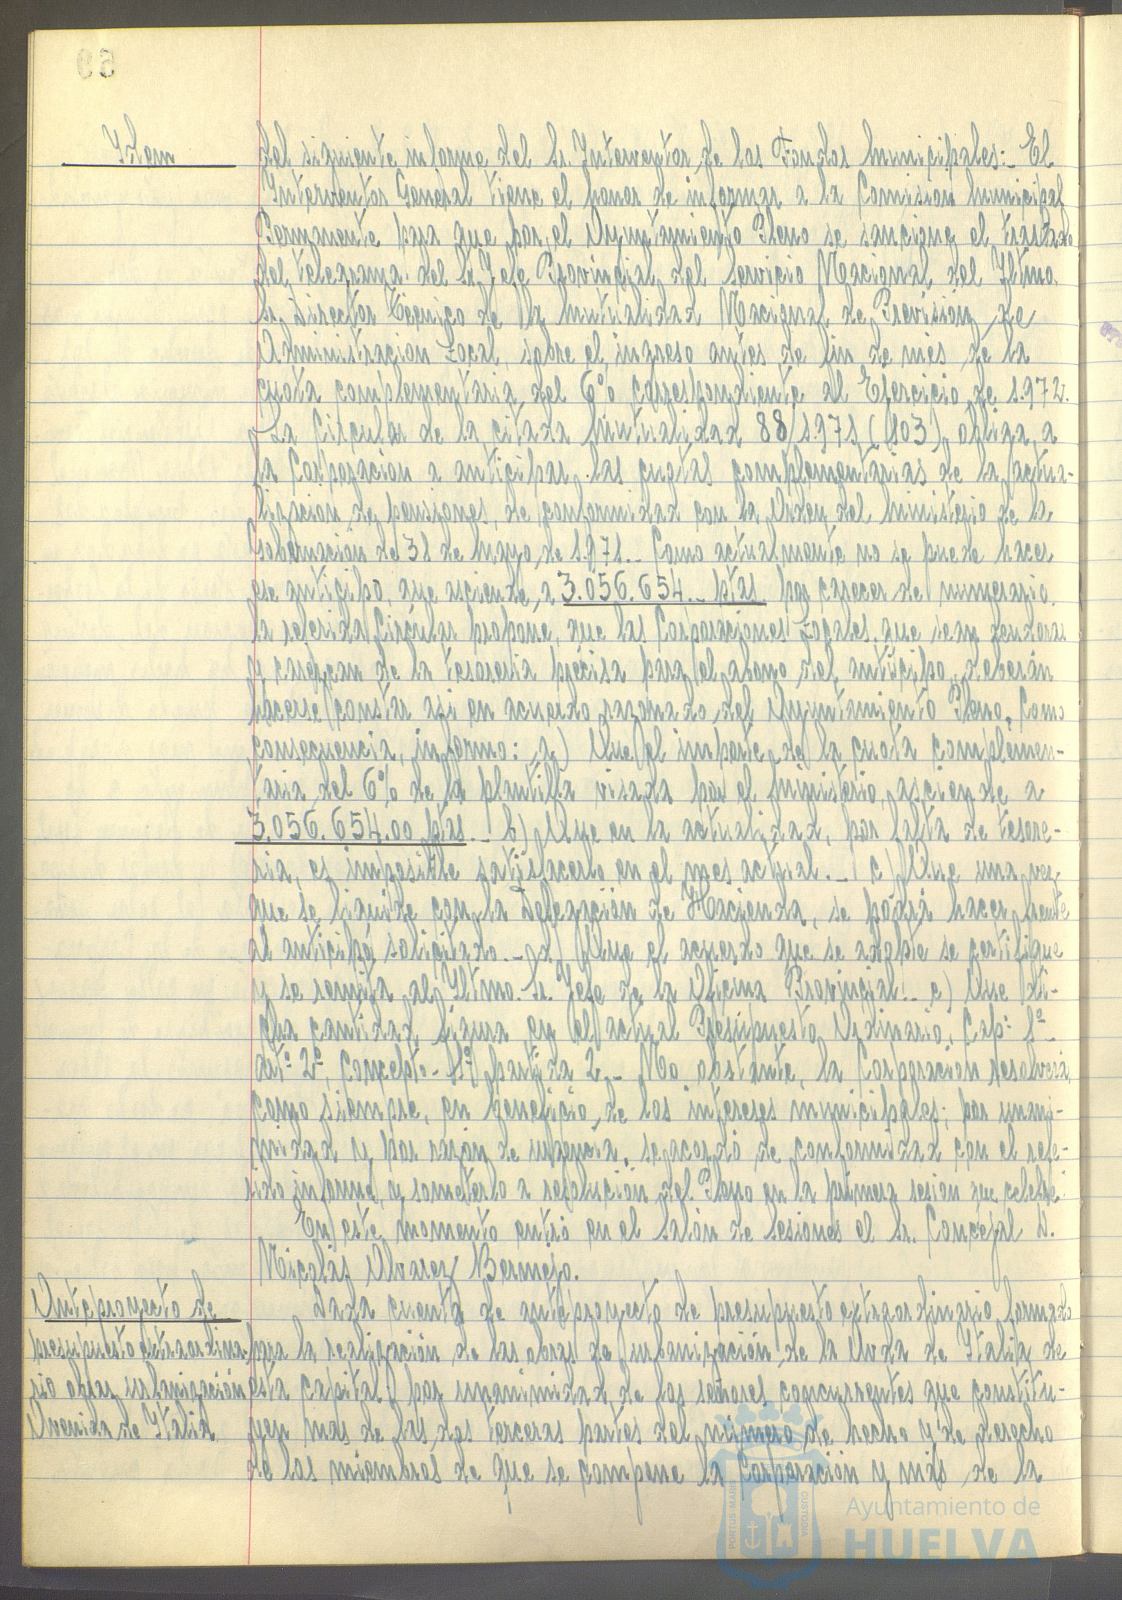 69
Item
del siguiente informe del Sr. Interventor de los Fondos Municipales:- El
Interventor General tiene el honor de informar a la Comisión Municipal
Permanente para que por el Ayuntamiento Pleno se sancione el traslado
del telegrama del Sr. Jefe Provincial del Servicio Nacional del Iltmo.
Sr. Director Técnico de la Mutualidad Nacional de Previsión de
Administración Local, sobre el ingreso antes de fin de mes de la
cuota complementaria del 6% correspondiente al Ejercicio de 1.972.
La Circular de la citada Mutualidad 88/1.971 (103), obliga a
la Corporación a anticipar las cuotas complementarias de la actua-
lización de pensiones, de conformidad con la Orden del Ministerio de la
Gobernación de 31 de Mayo de 1.971.- Como actualmente no se puede hacer
ese anticipo, que asciende a 3.056.654.- ptas. por carecer de numerario.
la referida Circular propone, que las Corporaciones Locales, que sean deudoras
y carezcan de la tesorería precisa para el abono del anticipo, deberán
hacerse constar así en acuerdo razonado del Ayuntamiento Pleno. Como
consecuencia, informo: a) Que el importe de la cuota complemen-
taria del 6% de la plantilla visada por el Ministerio, asciende a
3.056.654.00 ptas.- b) Que en la actualidad, por falta de tesore-
ría, es imposible satisfacerlo en el mes actual.- c) Que una vez
que se liquide con la Delegación de Hacienda, se podrá hacer frente
al anticipo solicitado.- d) Que el acuerdo que se adopte se certifique
y se remita al Iltmo. Sr. Jefe de la Oficina Provincial.- e) Que di-
cha cantidad figura en el actual Presupuesto Ordinario, Capº 1º
Artº 2º, Concepto- 1º, partida 2.- No obstante, la Corporación resolverá
como siempre, en beneficio de los intereses municipales; por unani-
midad y por razón de urgencia, se acordó de conformidad con el refe-
rido informe, y someterlo a resolución del Pleno en la primera sesión que celebre.
En este momento entró en el Salón de Sesiones el Sr. Concejal D.
Nicolás Alvarez Bermejo.
Anteproyecto de
presupuesto extraordina-
rio obras urbanización
Avenida de Italia
Dada cuenta de anteproyecto de presupuesto extraordinario formado
para la realización de las obras de urbanización de la Avda de Italia de
esta capital, por unanimidad de los señores concurrentes que constitu-
yen más de las dos terceras partes del número de hecho y de derecho
de los miembros de que se compone la Corporación y más de la
PORTUS MARIS
CUSTODIA
Ayuntamiento de
HUELVA